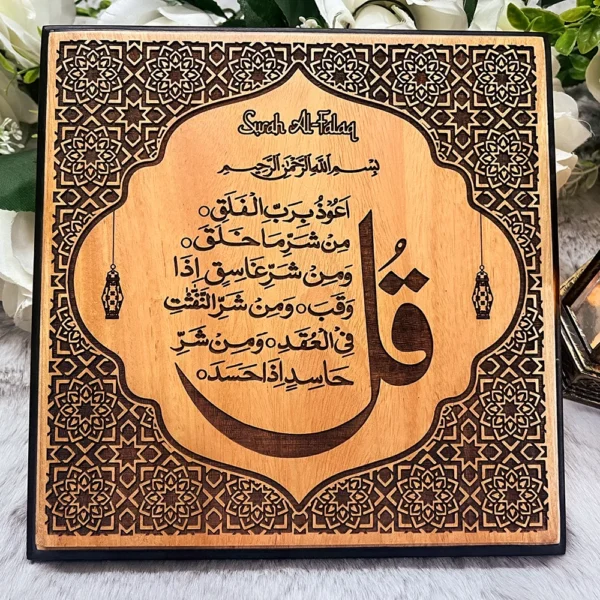 Surah Al-Falaq
بِسْمِ اللهِ الرَّحْمٰنِ الرَّحِيْمِ
قُلْ
اَعُوْذُ بِرَبِّ الْفَلَقِ ○
مِنْ شَرِّ مَا خَلَقَ ○
وَمِنْ شَرِّ غَاسِقٍ اِذَا
وَقَبَ ○ وَمِنْ شَرِّ النَّفّٰثٰتِ
فِي الْعُقَدِ ○ وَمِنْ شَرِّ
حَاسِدٍ اِذَا حَسَدَ ○